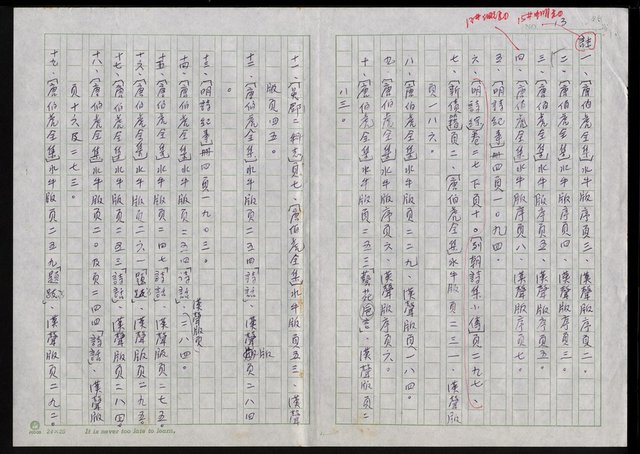 註
一、「唐伯虎全集」水牛版序頁三、漢聲版序頁二。
二、「唐伯虎全集」水牛版序頁四、漢聲版序頁三。
三、「唐伯虎全集」水牛版序頁五、漢聲版序頁五。
四、「唐伯虎全集」水牛版序頁八、漢聲版序頁七。
五、「明詩紀事」冊四頁一〇九四。
六、「明詩綜」卷二七下頁十。「列朝詩集小傳」頁二九七、
七、「新倩籍」頁二、「唐伯虎全集」水牛版頁二三一、漢聲版
頁一八六。
八、「唐伯虎全集」水牛版頁二二九、漢聲版頁一八四。
九、「唐伯虎全集」水牛版序頁六、漢聲版序頁六。
十、「唐伯虎全集」水牛版頁二五三「藝苑卮言」、漢聲版頁二
八三。
十一、「吳郡二科志」頁七、「唐伯虎全集」水牛版頁五三、漢聲
版頁四五。
十二、「唐伯虎全集」水牛版頁二五四「詩話」、漢聲版頁二八四
。
十三、「明詩紀事」冊四頁一九〇三。
漢聲版頁
十四、「唐伯虎全集」水牛版頁二五四「詩話」、(二八四。
十五、「唐伯虎全集」水牛版頁二四七「詩話」、漢聲版頁二七五。
十六、「唐伯虎全集」水牛版頁二六一「題跋」、漢聲版頁二九五。
十七、「唐伯虎全集」水牛版頁二五三「詩話」、漢聲版頁二八四。
十八、「唐伯虎全集」水牛版頁二〇及頁二四四「詩話」、漢聲版
頁十六及二七三。
十九、「唐伯虎全集」水牛版頁二五九「題跋」、漢聲版頁二九二。
24×25 It is never too late to learn.